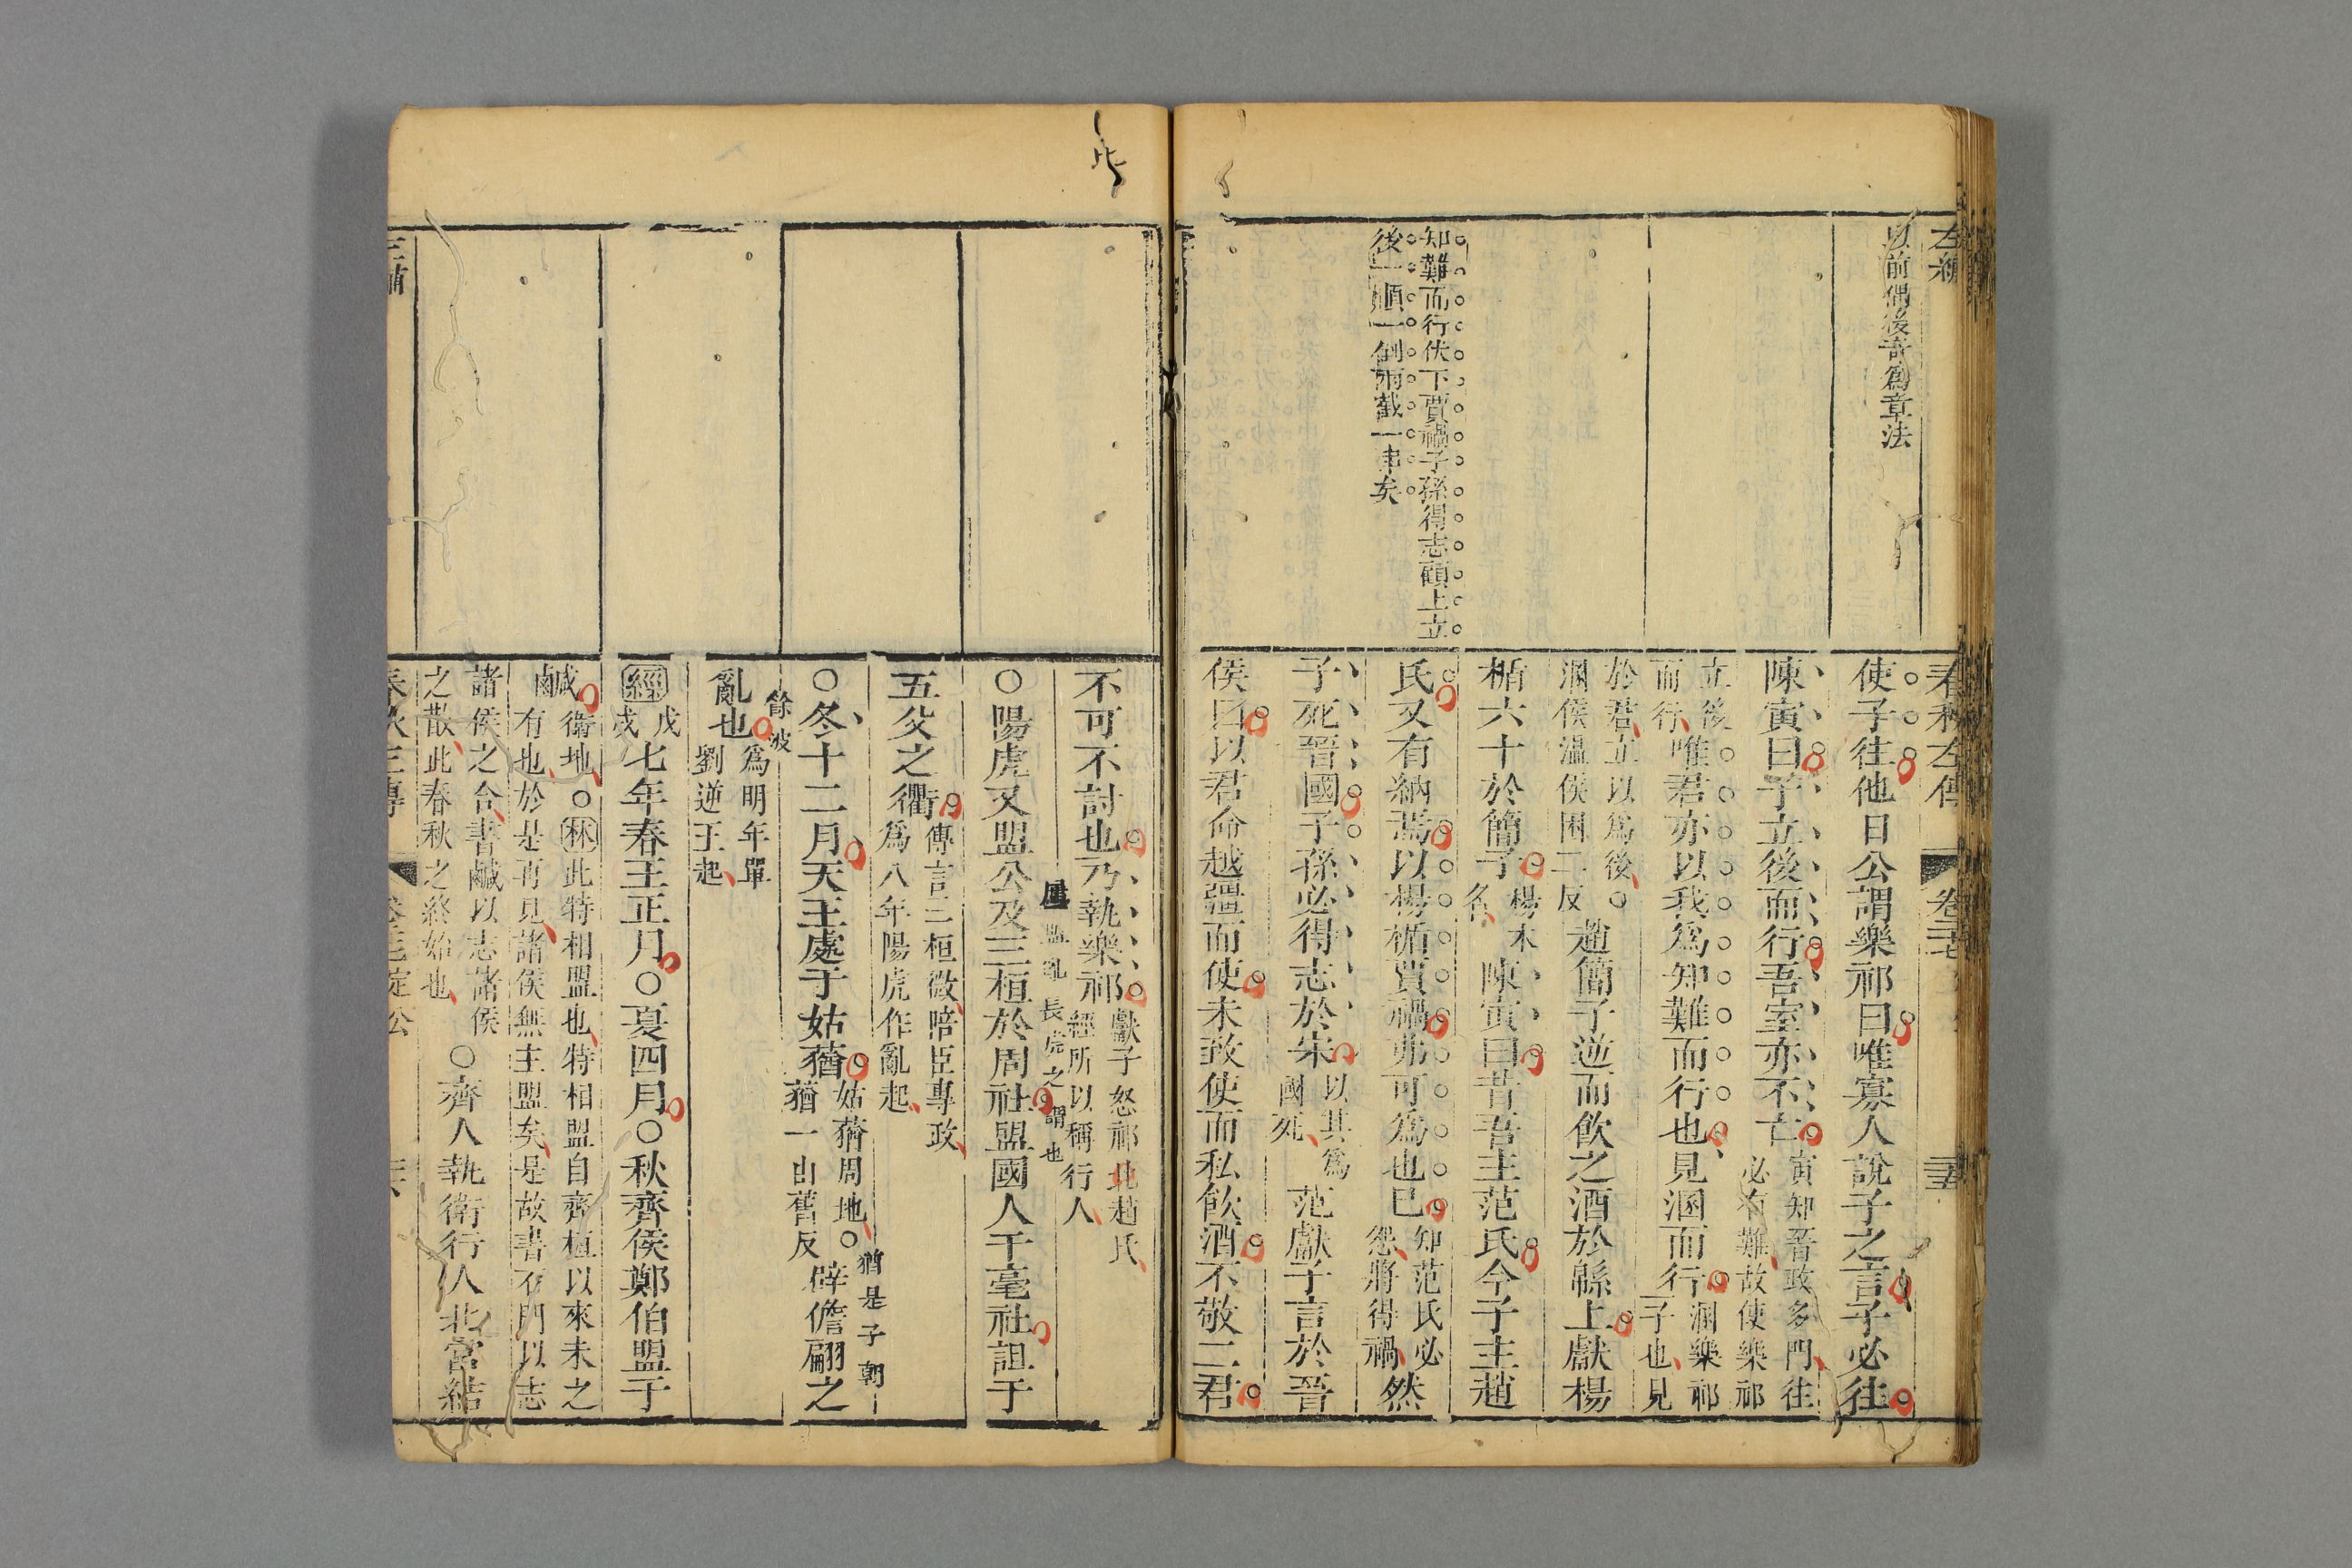 以前偶後奇爲章法
知難而行伏下賈禍子孫得志顧上立
後一順一倒兩截一串矣
使子往他日公謂樂祁曰唯寡人說子之言子必往
陳寅曰子立後而行吾室亦不亡
寅知晉政多門往
必有難故使樂祁
立後
而行
唯君亦以我爲知難而行也見溷而行
溷樂祁
子也見
於君立以爲後○
溷侯溫侯困二反
趙簡子逆而飲之酒於緜上獻楊
楯六十於簡子
楊木
名
陳寅曰昔吾主范氏今子主趙
氏又有納焉以楊楯賈禍弗可爲也已
知范氏必
怨將得禍
然
子死晉國子孫必得志於宋
以其爲
國死
范獻子言於晉
侯曰以君命越疆而使未致使而私飲酒不敬二君
不可不討也乃執樂祁
獻子怒祁北趙氏
經所以稱行人
○陽虎又盟公及三桓於周社盟國人于亳社詛于
長虎之謂也
五父之衢
傳言三桓微陪臣專政
爲八年陽虎作亂起
○冬十二月天王處于姑蕕
姑蕕周地○
蕕一由舊反
辟儋翩之
猶是子朝
餘波
亂也
爲明年單
劉逆王起
經
戊戌
七年春王正月○夏四月○秋齊侯鄭伯盟于
鹹
衛地○林此特相盟也特相盟自齊桓以來未之
有也於是再見諸侯無主盟矣是故書石門以志
諸侯之合書鹹以志諸侯
之散此春秋之終始也
○齊人執衛行人北宮結